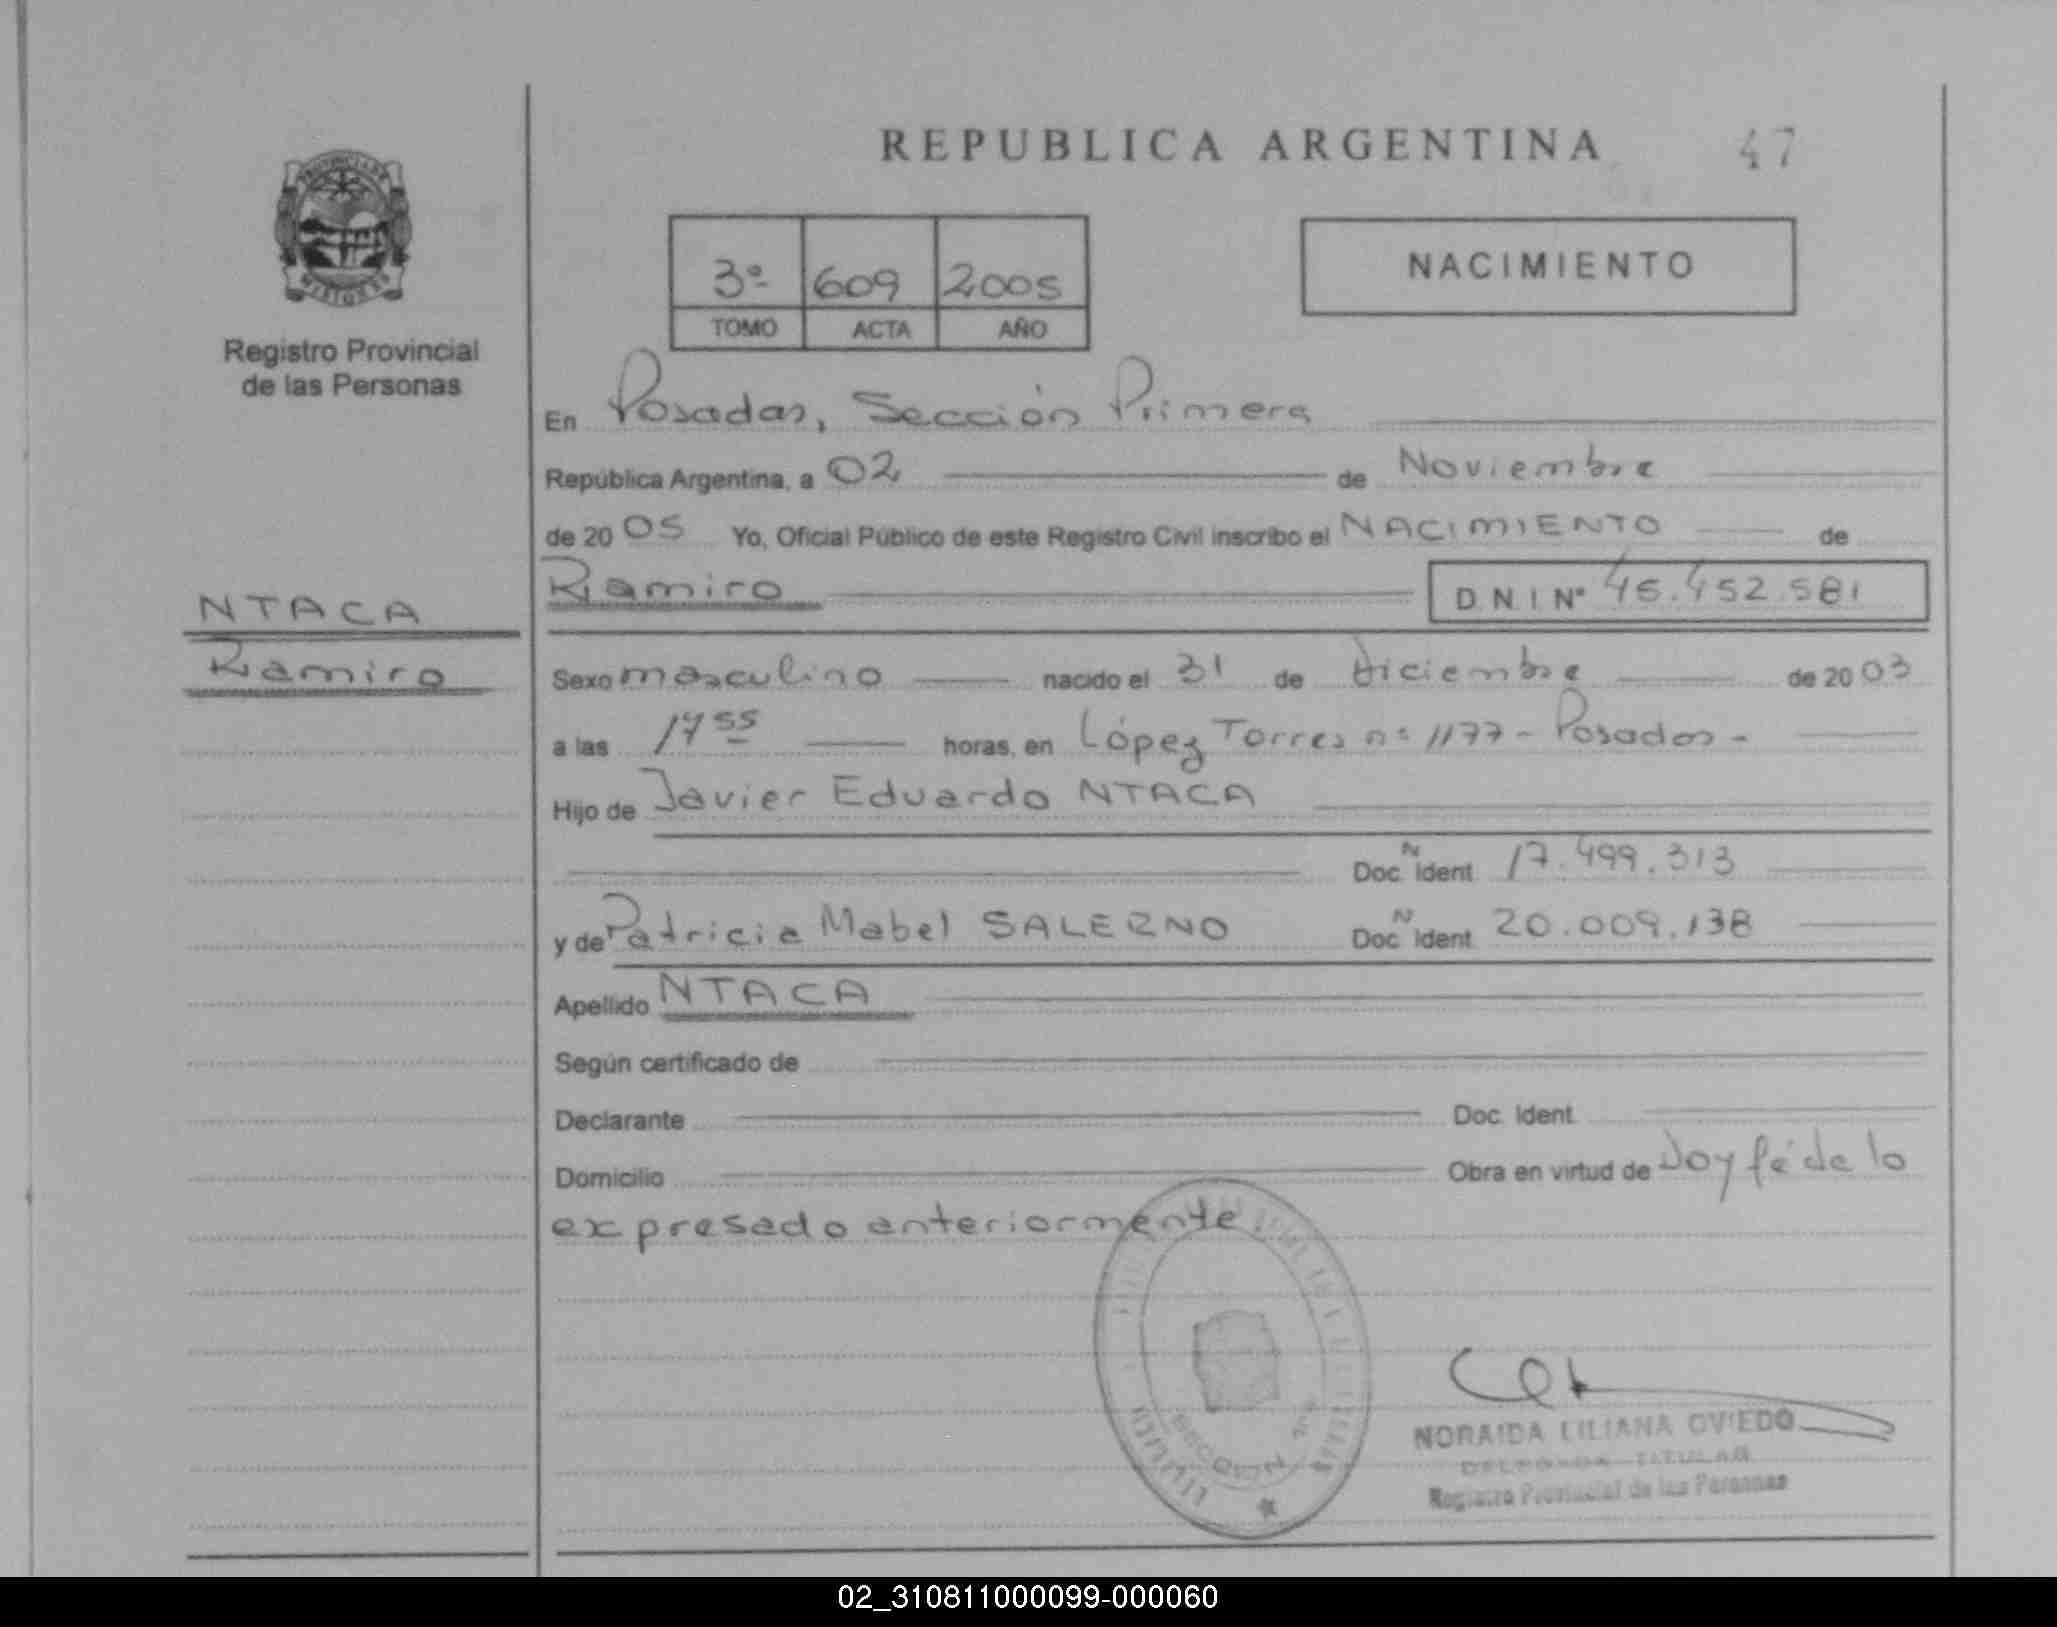 REPUBLICA ARGENTINA 47
PROVINCIA DE
MISIONES
Registro Provincial
de las Personas
3º 609 2005
TOMO ACTA AÑO
NACIMIENTO
En Posadas, Sección Primera
República Argentina, a 02 de Noviembre
de 2005 Yo, Oficial Público de este Registro Civil inscribo el NACIMIENTO de
Ramiro D.N.I Nº 45.452.581
NTACA
Ramiro
Sexo masculino nacido el 31 de diciembre de 2003
a las 1755 horas, en López Torres nº 1177 - Posadas -
Hijo de Javier Eduardo NTACA
Doc. N Ident 17.499.313
y de Patricia Mabel SALERNO Doc. N Ident 20.009.138
Apellido NTACA
Según certificado de
Declarante Doc. Ident.
Domicilio Obra en virtud de Doy fé de lo
expresado anteriormente.
SECCION
NORAIDA LILIANA OVIEDO
DELEGADA TITULAR
Registro Provincial de las Personas
02_310811000099-000060